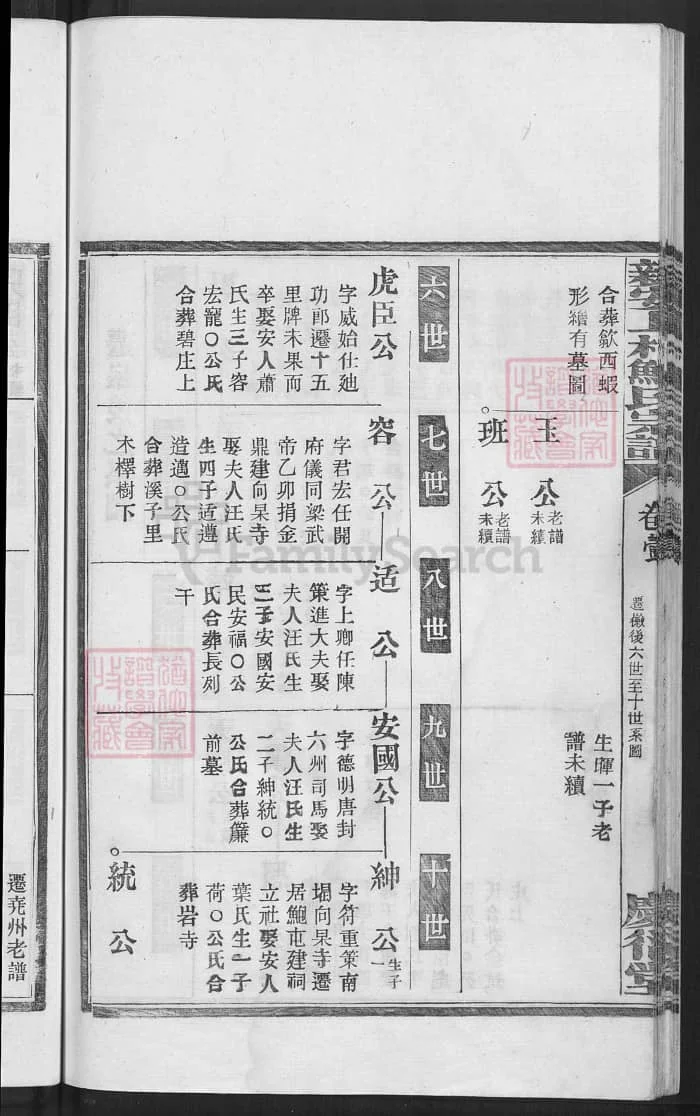 新安丁村鮑氏宗譜
卷壹
遷徽後六世至十世系圖
慶衍堂
合葬歙西蝦
形繪有墓圖
玉公老譜未續
班公老譜未續
生暉一子老
譜未續
六世
七世
八世
九世
十世
虎臣公
字威始仕廸
功郎遷十五
里牌未果而
卒娶安人蕭
氏生三子容
宏寵〇公氏
合葬碧庄上
容公
字君宏任開
府儀同梁武
帝乙卯捐金
鼎建向杲寺
娶夫人汪氏
生四子适遵
造邁〇公氏
合葬溪子里
木檡樹下
适公
字上卿任陳
策進大夫娶
夫人汪氏生
二子安國安
民安福〇公
氏合葬長列
干
安國公
字德明唐封
六州司馬娶
夫人汪氏生
二子紳統〇
公氏合葬簾
前墓
紳公生一子
字符重策南
堨向杲寺遷
居鮑屯建祠
立社娶安人
葉氏生一子
荷〇公氏合
葬岩寺
統公
遷堯州老譜
FamilySearch